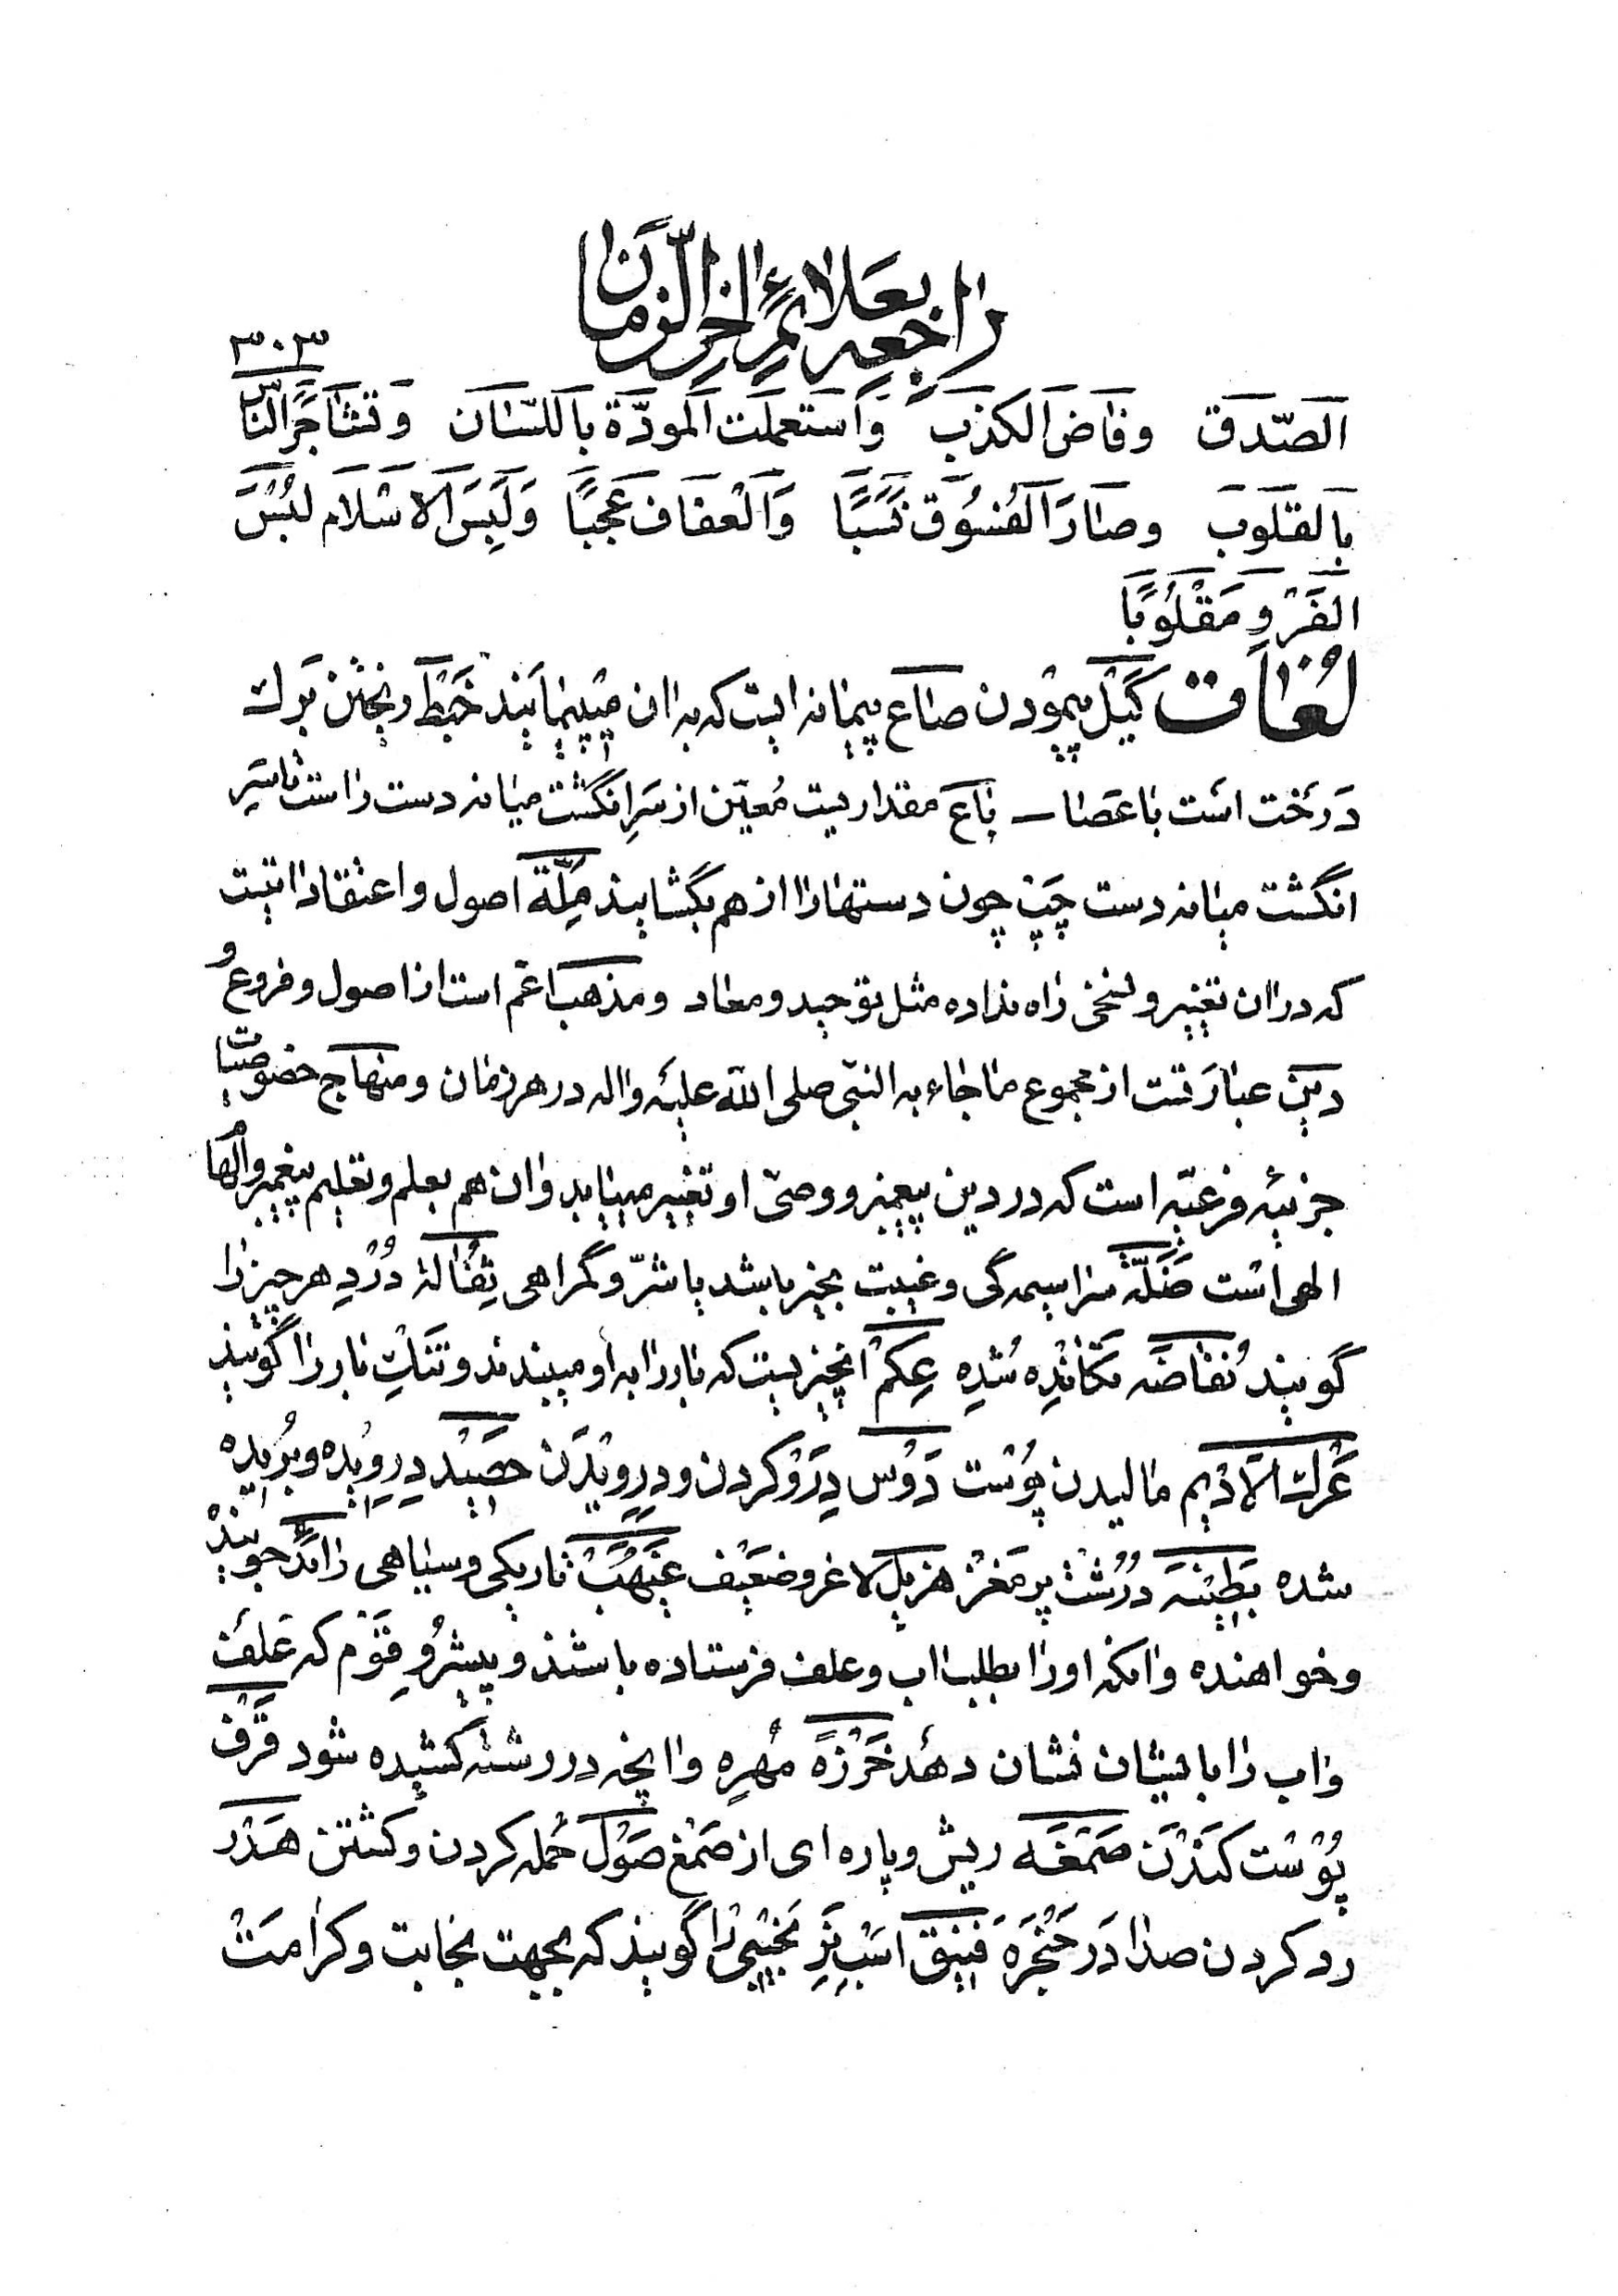 راجعه بعلائم اخر الزمان
۳۰۳
الصّدق وفاض الكذب واستعملت المودّة باللسان وتشاجر الناس
بالقلوب وصار الفسوق نسبًا والعفاف عجبًا ولبس الاسلام لبس
الفَرْوِ مَقْلُوبًا
لغات كَيْل پیمودن صاع پیمانه ایست که به ان میپیمایند خَبْط ریختن برك
درخت است با عصا ــ باع مقداریست مُعیّن از سَرِ انگشت میانه دست راست تا سَرِ
انگشت میانه دست چَپ چون دستها را از هم بگشایند مِلّة اصول و اعتقاداتیست
که در ان تغییر و نسخی راه نداده مثل توحید و معاد و مذهب اعّم است از اصول و فروع و
دین عبارتست از مجموع ما جاء به النبّی صلی الله علیه واله در هر زمان و منهاج خصوصیات
جزئیه فرعیّه است که در دین پیغمبر و وصیّ او تغییر مییابد و ان هم بعلم و تعلیم پیغمبر و الها
الهی است ضَلّة سراسیمه گی و غیبت بخیر باشد یا شرّ و گمراهی ثِفالة دُرْدِ هر چیز را
گویند نُفاضَه تکانْدِه شُدِه عِکم انچیزیست که بار را به او میبندند و تنكِ بار را گویند
عَرك الاَديم مالیدن پُوست دَوْس دِرَوْ کردن و دِرِویْدَن حصَیْد دِرِویْده و بُریده
شده بَطِیْنَه دُرُشْت پر مَغز هزیل لاغر و ضعَیْف غَیْهَب تاریکی و سیاهی رائد جویند
و خواهنده و انکه او را بطلب اب و علف فرستاده باشند و پیشرُوِ قَوْم که عَلَف
و اب را بایشان نشان دهد خَرَزَه مُهره و انچه در رشته کشیده شود قَرْف
پُوْسْت کَنْدَن صَمْغَه ریش و پاره ای از صَمْغ صَوْل حُمله کردن و کشتن هَدْر
رد کردن صدا دَر حَنْجَرَه فَنیق اَسْب نَرِ نَجْیْبی را گویند که بجهت نجابت و کرامَتْ